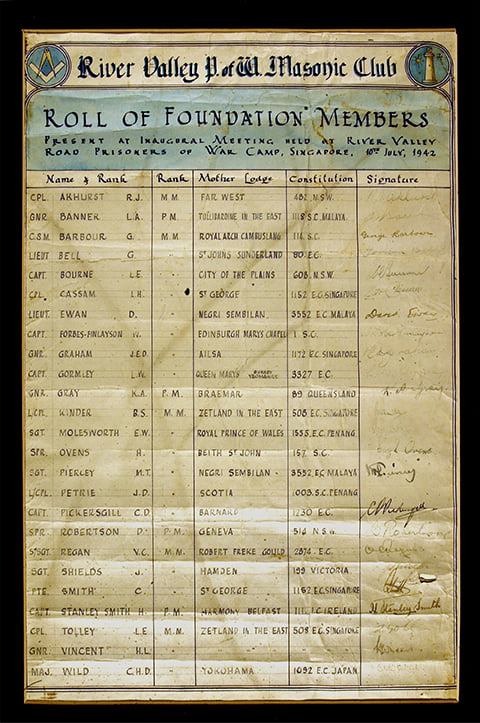 River Valley P. of W. Masonic Club
ROLL OF FOUNDATION MEMBERS
PRESENT AT INAUGURAL MEETING HELD AT RIVER VALLEY
ROAD PRISONERS OF WAR CAMP, SINGAPORE, 10TH JULY, 1942
Name & Rank Rank Mother Lodge Constitution Signature
CPL. AKHURST R.J. M.M. FAR WEST N.S.W.
GNR. BANNER L.A. P.M. TULLIBARDINE IN THE EAST 1118 S.C. MALAYA.
C.S.M. BARBOUR G. M.M. ROYAL ARCH CAMBUSLANG 114 S.C. George Barbour
LIEUT BELL G. " ST JOHNS SUNDERLAND 80 E.C.
CAPT. BOURNE L.E. " CITY OF THE PLAINS 608 N.S.W.
CPL. CASSAM I.H. " ST GEORGE 1152 E.C. SINGAPORE
LIEUT. EWAN D. " NEGRI SEMBILAN 3552 E.C. MALAYA David Ewan
CAPT. FORBES-FINLAYSON W. " EDINBURGH MARYS CHAPEL 1 S.C.
GNR. GRAHAM J.E.D. " AILSA 1172 E.C. SINGAPORE
CAPT. GORMLEY L.W. " QUEEN MARYS 3327 E.C.
GNR. GRAY K.A. P.M. BRAEMAR 89 QUEENSLAND
L/CPL. KINDER B.S. M.M. ZETLAND IN THE EAST 508 E.C. SINGAPORE
SGT. MOLESWORTH E.W. " ROYAL PRINCE OF WALES 1555 E.C. PENANG
SPR. OVENS H. " BEITH ST JOHN 157 S.C. Hugh Ovens
SGT. PIERCEY M.T. " NEGRI SEMBILAN 3552 E.C. MALAYA
L/CPL. PETRIE J.D. " SCOTIA 1003 S.C. PENANG
CAPT. PICKERSGILL C.D. " BARNARD 1230 E.C. C Pickersgill
SPR. ROBERTSON D. P.M. GENEVA 514 N.S.W. Robertson
S/SGT. REGAN V.C. M.M. ROBERT FREKE GOULD 2874 E.C.
SGT. SHIELDS J. " HAMDEN 199 VICTORIA
PTE. SMITH C. " ST GEORGE 1152 E.C. SINGAPORE
CAPT STANLEY SMITH H. P.M. HARMONY BELFAST 111 I.C. IRELAND H Stanley Smith
CPL. TOLLEY L.E. M.M. ZETLAND IN THE EAST 508 E.C. SINGAPORE
GNR. VINCENT H.L.
MAJ. WILD C.H.D. " YOKOHAMA 1092 E.C. JAPAN